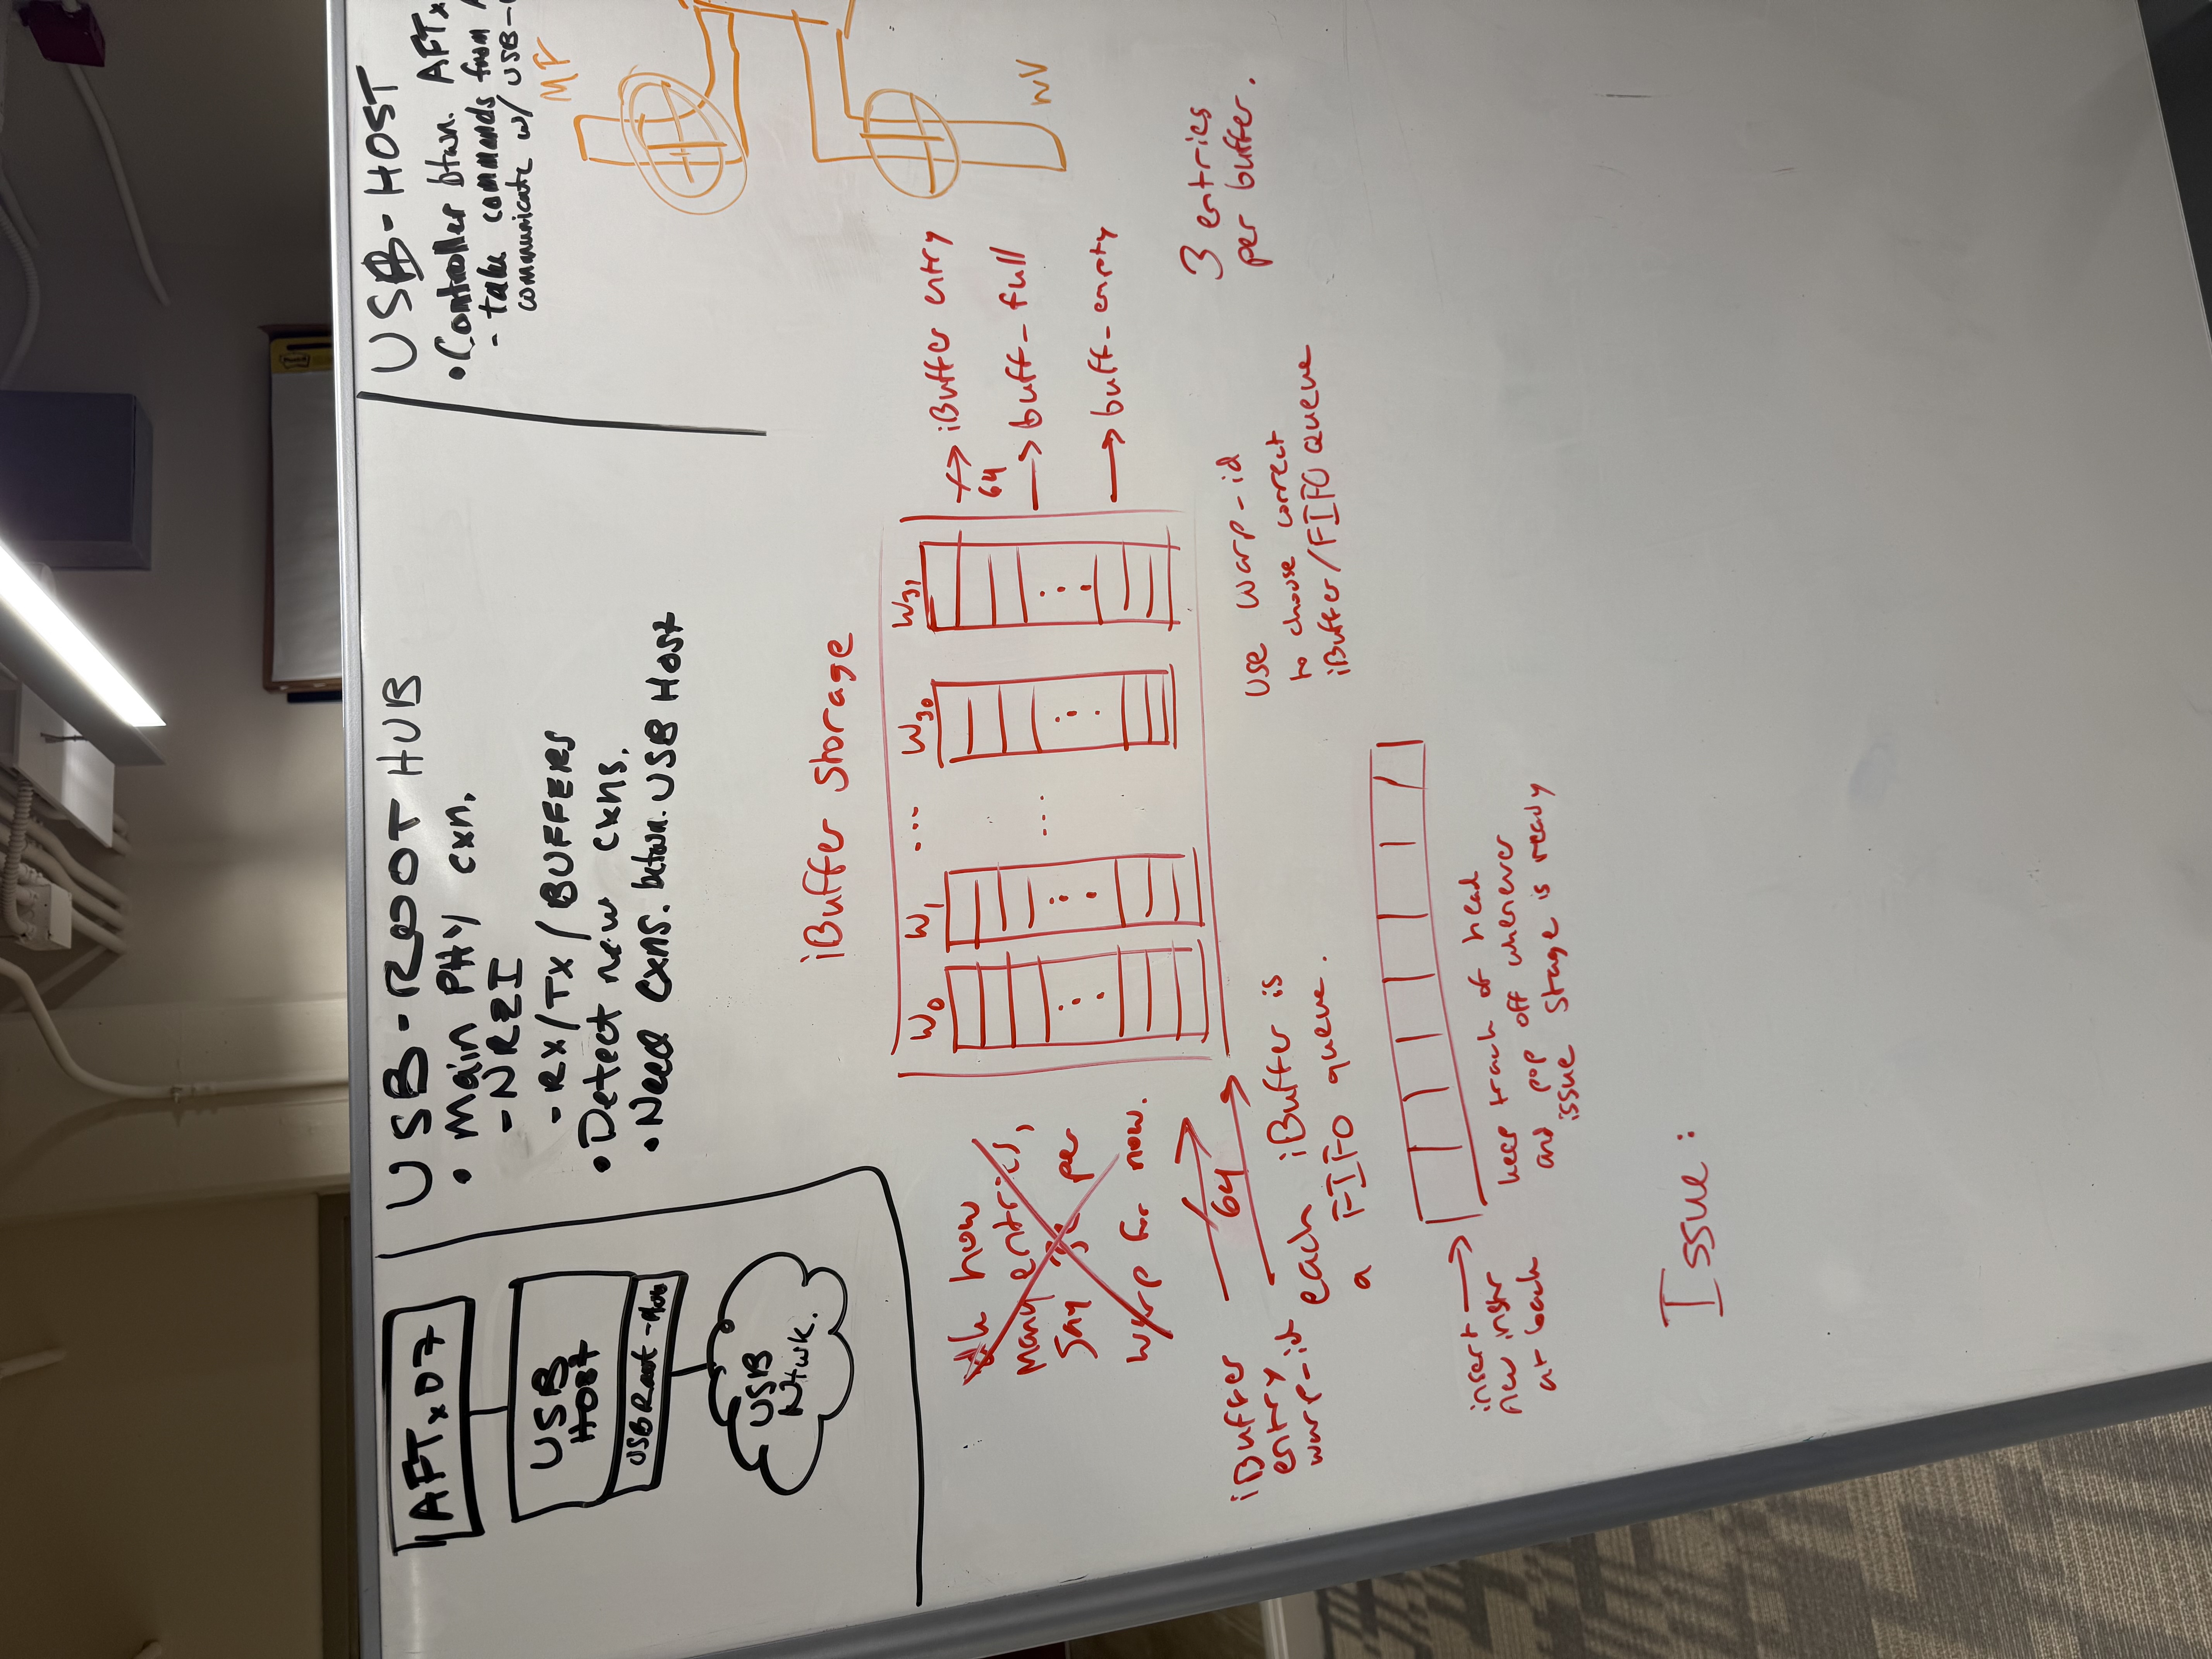 AFTx07
USB
HOST
USB Root-Hub
USB
Ntwk.
USB-ROOT HUB
• Main PHY cxn.
- NRZI
- RX/TX/BUFFERS
• Detect new cxns.
• Need cxns. betwn. USB Host
USB-HOST
• Controller btwn. AFTx
- take commands from A
communicate w/ USB-
MF
WV
iBuffer Storage
W0 W1 ... W30 W31
...
idk how
many entries,
Say 32 per
warp for now.
iBuffer entry
64
buff_full
buff_empty
64
iBuffer
entry
warp-id
each iBuffer is
a FIFO queue.
use warp-id
to choose correct
iBuffer/FIFO queue
3 entries
per buffer.
insert
new instr
at back
keep track of head
and pop off whenever
issue stage is ready
Issue: